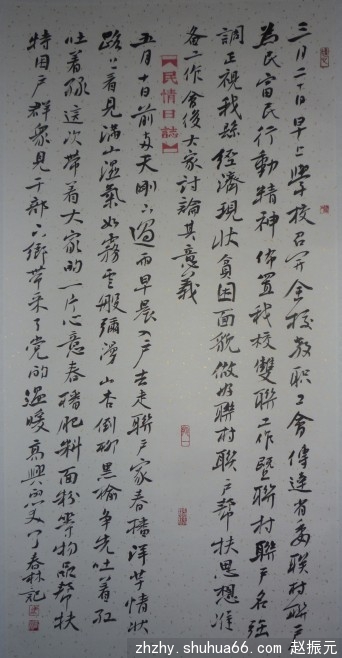 三月二十日早上學校召開全校教职工會傳達省委联村聯户
為民富民行動精神佈置我校雙聯工作暨联村聯户名强
調正視我縣經濟現狀貧困面貌做好聯村联户幫扶思想准
备工作會後大家討論其意義
【民情日誌】
五月十日前两天刚下過雨早晨入户去走联户家春播洋芋情状
路上看見满山湿氣如霧雲般彌漫山杏倒柳黑榆争先吐着红
吐着绿這次带着大家的一片心意春播肥料面粉等物品幫扶
特困户群衆見干部下鄉带来了党的温暖高興的笑了春林記
zhzhy.shuhua66.com 赵振元